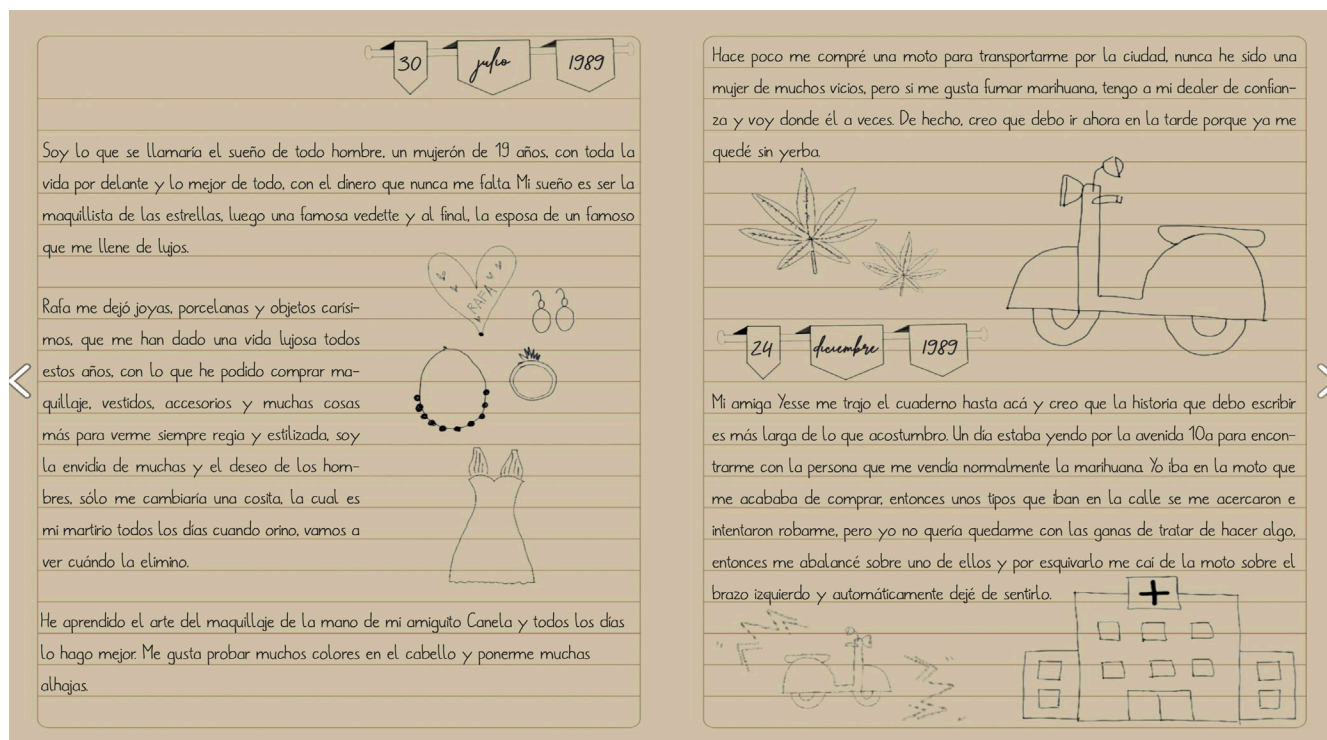 30 julio 1989
Soy lo que se llamaría el sueño de todo hombre, un mujerón de 19 años, con toda la
vida por delante y lo mejor de todo, con el dinero que nunca me falta. Mi sueño es ser la
maquillista de las estrellas, luego una famosa vedette y al final, la esposa de un famoso
que me llene de lujos.
RAFA
Rafa me dejó joyas, porcelanas y objetos carísi-
mos, que me han dado una vida lujosa todos
estos años, con lo que he podido comprar ma-
quillaje, vestidos, accesorios y muchas cosas
más para verme siempre regia y estilizada, soy
la envidia de muchas y el deseo de los hom-
bres, sólo me cambiaría una cosita, la cual es
mi martirio todos los días cuando orino, vamos a
ver cuándo la elimino.
He aprendido el arte del maquillaje de la mano de mi amiguito Canela y todos los días
lo hago mejor. Me gusta probar muchos colores en el cabello y ponerme muchas
alhajas.
Hace poco me compré una moto para transportarme por la ciudad, nunca he sido una
mujer de muchos vicios, pero si me gusta fumar marihuana, tengo a mi dealer de confian-
za y voy donde él a veces. De hecho, creo que debo ir ahora en la tarde porque ya me
quedé sin yerba.
24 diciembre 1989
Mi amiga Yesse me trajo el cuaderno hasta acá y creo que la historia que debo escribir
es más larga de lo que acostumbro. Un día estaba yendo por la avenida 10a para encon-
trarme con la persona que me vendía normalmente la marihuana. Yo iba en la moto que
me acababa de comprar, entonces unos tipos que iban en la calle se me acercaron e
intentaron robarme, pero yo no quería quedarme con las ganas de tratar de hacer algo,
entonces me abalancé sobre uno de ellos y por esquivarlo me caí de la moto sobre el
brazo izquierdo y automáticamente dejé de sentirlo.